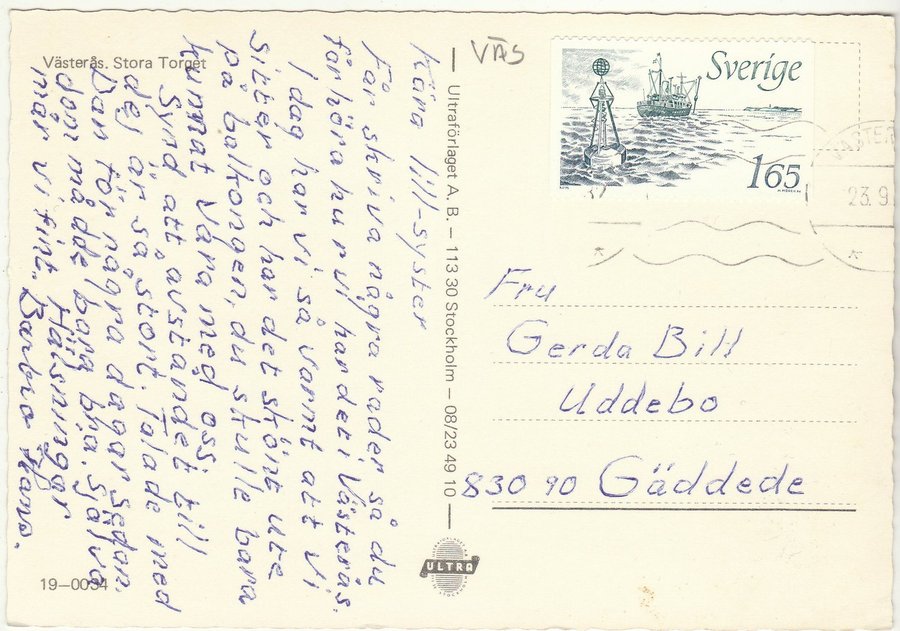 Västerås. Stora Torget
VÄS
Sverige
165
VÄSTER
23.9
Kära lill-syster
Får skriva några rader så du
får höra hur vi har det i Västerås.
I dag har vi så varmt att vi
sitter och har det skönt ute
på balkongen, du skulle bara
kunnat vara med oss.
Synd att avståndet till
dej är så stort. Talade med
Dan för några dagar sedan.
dom mådde bara bra. Själva
mår vi fint. Hälsningar
Barbro Hans.
Ultraförlaget A.B. – 113 30 Stockholm – 08/23 49 10
Fru
Gerda Bill
Uddebo
830 90 Gäddede
ULTRA
19-0034